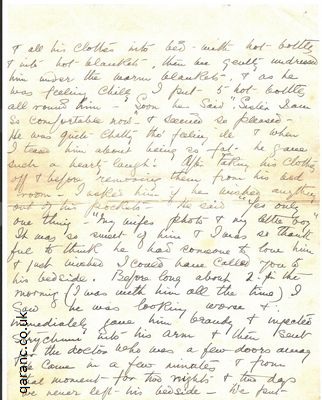 & all his clothes into bed - with hot - bottles
& into hot blankets, then we gently undressed
him under the warm blankets. & as he
was feeling chilly I put 5 hot - bottles
all round him - Soon he said "Sister I am
so comfortable now" & seemed so pleased -
He was quite chatty tho' feeling ill & when
I teased him about being so fat - he gave
such a hearty laugh! After taking his clothes
off & before removing them from his bed
room - I asked him if he wished anything
out of his pockets - He said "Yes only
one thing "my wife's photo & my letter box"
It was so sweet of him & I was so thank
ful to think he had someone to love him
& I just wished I could have called you to
his bedside. Before long about 2. in the
morning (I was with him all the time) I
saw he was looking worse &
immediately gave him brandy & injected
strychnine into his arm & then sent
for the doctor who was a few doors away
to come in a few minutes - from
that moment - for two nights & two days
we never left his bedside - We put -
qaranc.co.uk